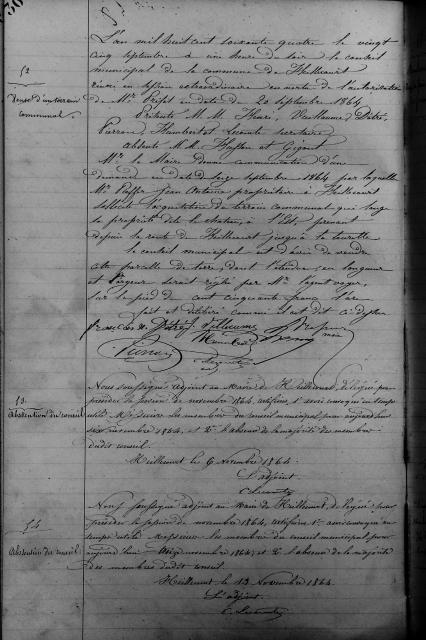 52
Vente d'un terrain
communal.
L'an mil huit cent soixante quatre le vingt
cinq septembre à une heure du soir le conseil
municipal de la commune de Heillecourt
réuni en session extraordinaire en vertu de l'autorisation
de Mr. Préfet en date du 20 septembre 1864
Présents M. M. Vuillaume,
Pierron, Humbert et Lecomte secrétaire
absents M. M. et Gigant
Mr. le Maire donne communication d'une
demande en date du septembre 1864 par laquelle
Mr. Jean Antoine propriétaire à Heillecourt
sollicite l'acquisition du terrain communal qui longe
sa propriété dite le château, à l'Est prenant
depuis la route de Heillecourt jusqu'à la tourelle
Le conseil municipal est d'avis de vendre
cette parcelle de terre, dont l'étendue en longueur
et largeur serait réglée par Mr. l'agent voyer,
sur le pied de cent cinquante francs l'are
fait et délibéré comme il est dit ci-dessus
Vuillaume
Humbert
Pierron
Lecomte
53
Abstention du conseil
Nous soussigné adjoint au Maire de Heillecourt, délégué pour
présider la session de novembre 1864, certifions 1° avoir convoqué en temps
utile Messieurs les membres du conseil municipal pour aujourd'hui
six novembre 1864, et 2° l'absence de la majorité des membres
dudit conseil.
Heillecourt le 6 Novembre 1864
L'adjoint
C. Lecomte
54
Abstention du conseil
Nous soussigné adjoint au Maire de Heillecourt, délégué pour
présider la session de novembre 1864, certifions 1° avoir convoqué en
temps utile Messieurs les membres du conseil municipal pour
aujourd'hui novembre 1864, et 2° l'absence de la majorité
des membres dudit conseil
Heillecourt le 13 Novembre 1864
L'adjoint
C. Lecomte